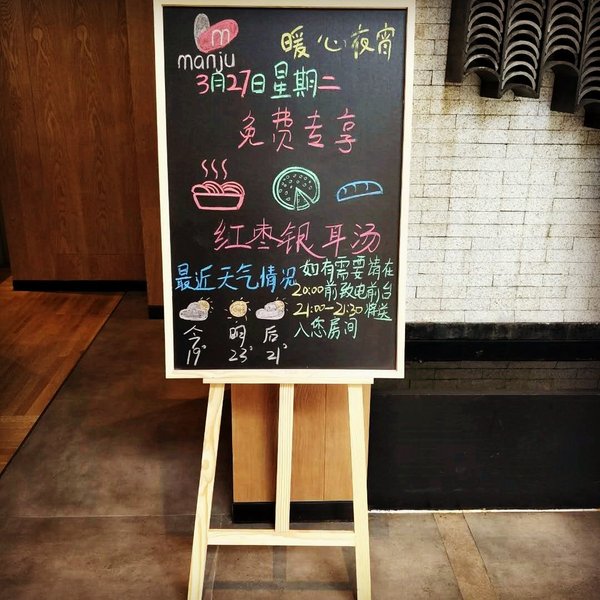 m
manju
暖心夜宵
3月27日星期二
免费专享
红枣银耳汤
最近天气情况
今 明 后
19° 23° 21°
如有需要请在
20:00前致电前台
21:00-21:30将送
入您房间